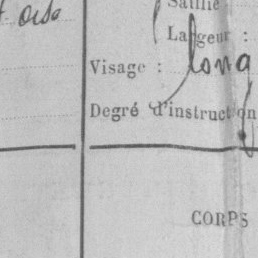 Saillie
Largeur :
Visage : long
Degré d'instruction
CORPS